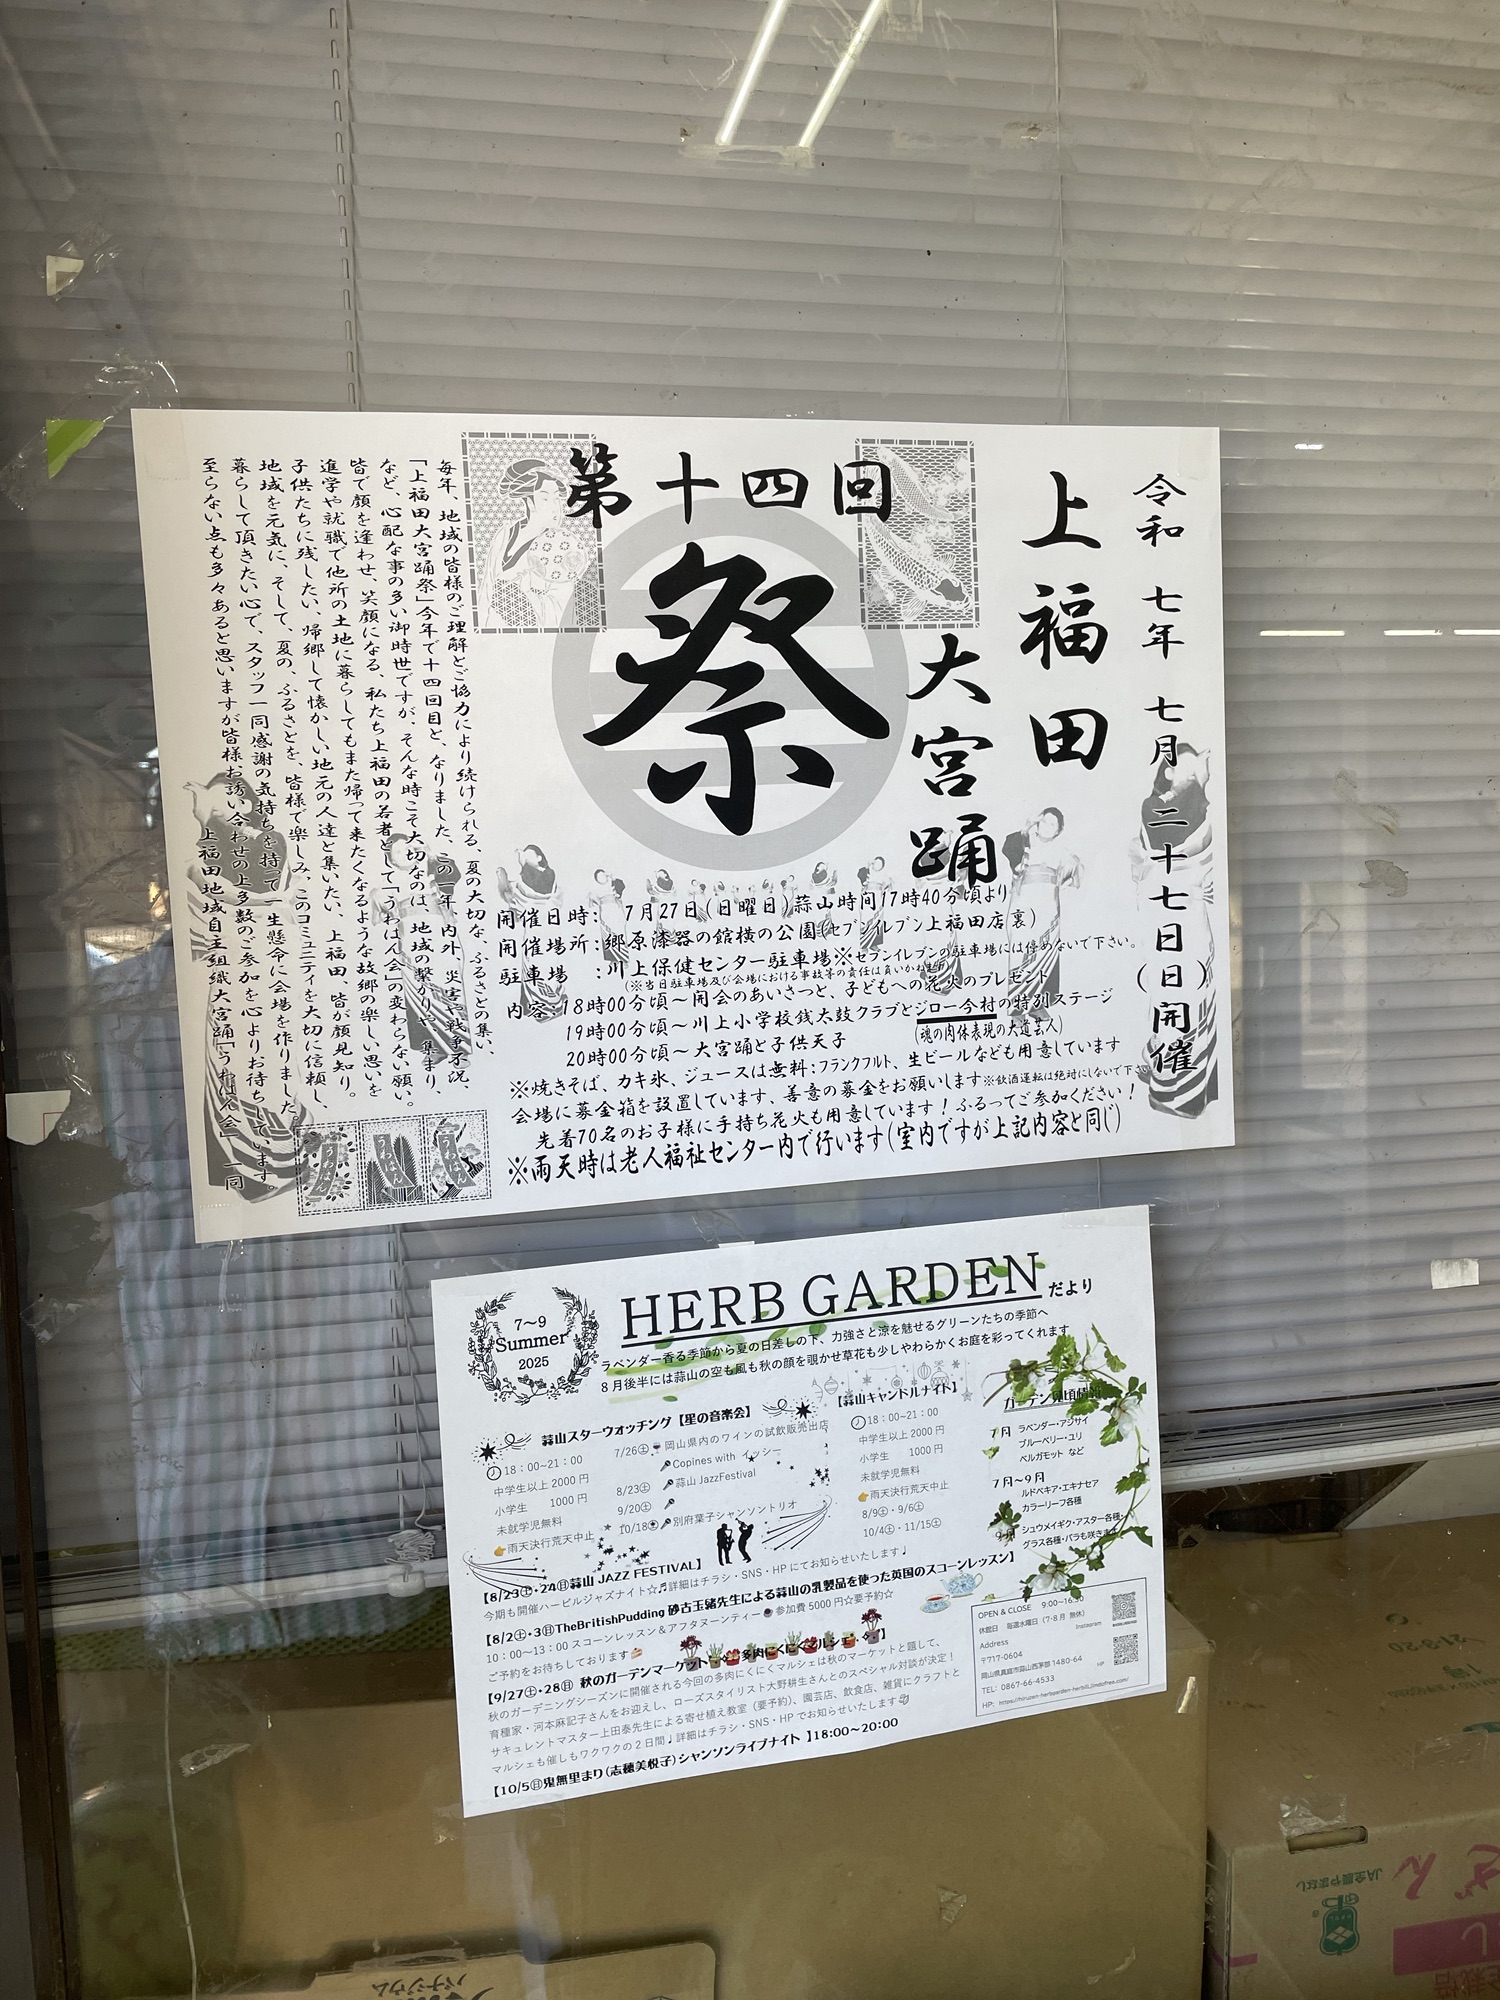 令和七年七月二十七日(日)開催
上福田
大宮踊
第十四回
祭
毎年、地域の皆様のご理解とご協力により続けられる、夏の大切な、ふるさとの集い、
「上福田大宮踊祭」今年で十四回目と、なりました、この一年、内外、災害や戦争、不況、
など、心配な事の多い御時世ですが、そんな時こそ大切なのは、地域の繋がりや、集まり、
皆で顔を逢わせ、笑顔になる、私たち上福田の若者として「うわはん会」の変わらない願い。
進学や就職で他所の土地に暮らしてもまた帰って来たくなるような故郷の楽しい思いを
子供たちに残したい、帰郷して懐かしい地元の人達と集いたい、上福田、皆が顔見知り。
地域を元気に、そして、夏の、ふるさとを、皆様で楽しみ、このコミュニティを大切に信頼し、
暮らして頂きたい心で、スタッフ一同感謝の気持ちを持って一生懸命に会場を作りました。
至らない点も多々あると思いますが皆様お誘い合わせの上多数のご参加を心よりお待ちしています。
上福田地域自主組織大宮踊「うわはん会」一同
開催日時: 7月27日(日曜日)蒜山時間17時40分頃より
開催場所:郷原漆器の館横の公園(セブンイレブン上福田店裏)
駐車場 :川上保健センター駐車場※セブンイレブンの駐車場には停めないで下さい。
(※当日駐車場及び会場における事故等の責任は負いかねます)
内容:18時00分頃～開会のあいさつと、子どもへの花火のプレゼント
19時00分頃～川上小学校銭太鼓クラブとジロー今村の特別ステージ
(魂の肉体表現の大道芸人)
20時00分頃～大宮踊と子供天子
※焼きそば、カキ氷、ジュースは無料:フランクフルト、生ビールなども用意しています
会場に募金箱を設置しています、善意の募金をお願いします※飲酒運転は絶対にしないで下さい
先着70名のお子様に手持ち花火も用意しています!ふるってご参加ください!
※雨天時は老人福祉センター内で行います(室内ですが上記内容と同じ)
うわはん うわはん うわはん
7～9
Summer
2025
HERB GARDEN だより
ラベンダー香る季節から夏の日差しの下、力強さと涼を魅せるグリーンたちの季節へ
8月後半には蒜山の空も風も秋の顔を覗かせ草花も少しやわらかくお庭を彩ってくれます
蒜山スターウォッチング【星の音楽会】
18：00~21：00
中学生以上 2000円
小学生 1000円
未就学児無料
雨天決行荒天中止
7/26㊏ 岡山県内のワインの試飲販売出店
Copines with イッシー
8/23㊏ 蒜山 JazzFestival
9/20㊏
10/18㊏ 別府葉子シャンソントリオ
【蒜山キャンドルナイト】
18：00~21：00
中学生以上 2000円
小学生 1000円
未就学児無料
雨天決行荒天中止
8/9㊏・9/6㊏
10/4㊏・11/15㊏
ガーデン見頃情報
7月 ラベンダー・アジサイ
ブルーベリー・ユリ
ベルガモット など
7月～9月
ルドベキア・エキナセア
カラーリーフ各種
9月 シュウメイギク・アスター各種
グラス各種・バラも咲きます
【8/23㊏・24㊐蒜山 JAZZ FESTIVAL】
今期も開催ハービルジャズナイト☆♬詳細はチラシ・SNS・HP にてお知らせいたします♩
【8/2㊏・3㊐TheBritishPudding 砂古玉緒先生による蒜山の乳製品を使った英国のスコーンレッスン】
10：00～13：00 スコーンレッスン＆アフタヌーンティー 参加費 5000円☆要予約☆
ご予約をお待ちしております
【9/27㊏・28㊐ 秋のガーデンマーケット 多肉にくにくマルシェ】
秋のガーデニングシーズンに開催される今回の多肉にくにくマルシェは秋のマーケットと題して、
育種家・河本麻記子さんをお迎えし、ローズスタイリスト大野耕生さんとのスペシャル対談が決定！
サキュレントマスター上田泰先生による寄せ植え教室（要予約）、園芸店、飲食店、雑貨にクラフトと
マルシェも催しもワクワクの2日間♩詳細はチラシ・SNS・HP でお知らせいたします
【10/5㊐鬼無里まり（志穂美悦子）シャンソンライブナイト 】18:00～20:00
OPEN & CLOSE 9:00~16:30
休館日 毎週水曜日（7・8月 無休）
Instagram
Address
〒717-0604
岡山県真庭市蒜山西茅部 1480-64
HP
TEL：0867-66-4533
HP: https://hiruzen-herbgarden-herbill.jimdofree.com/
JA全農やまなし
バナジウム